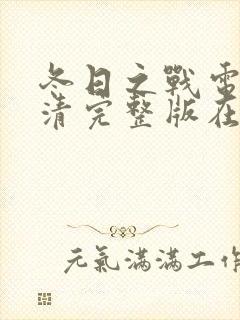 冬日之戰電
清完整版在
元氣滿滿工作